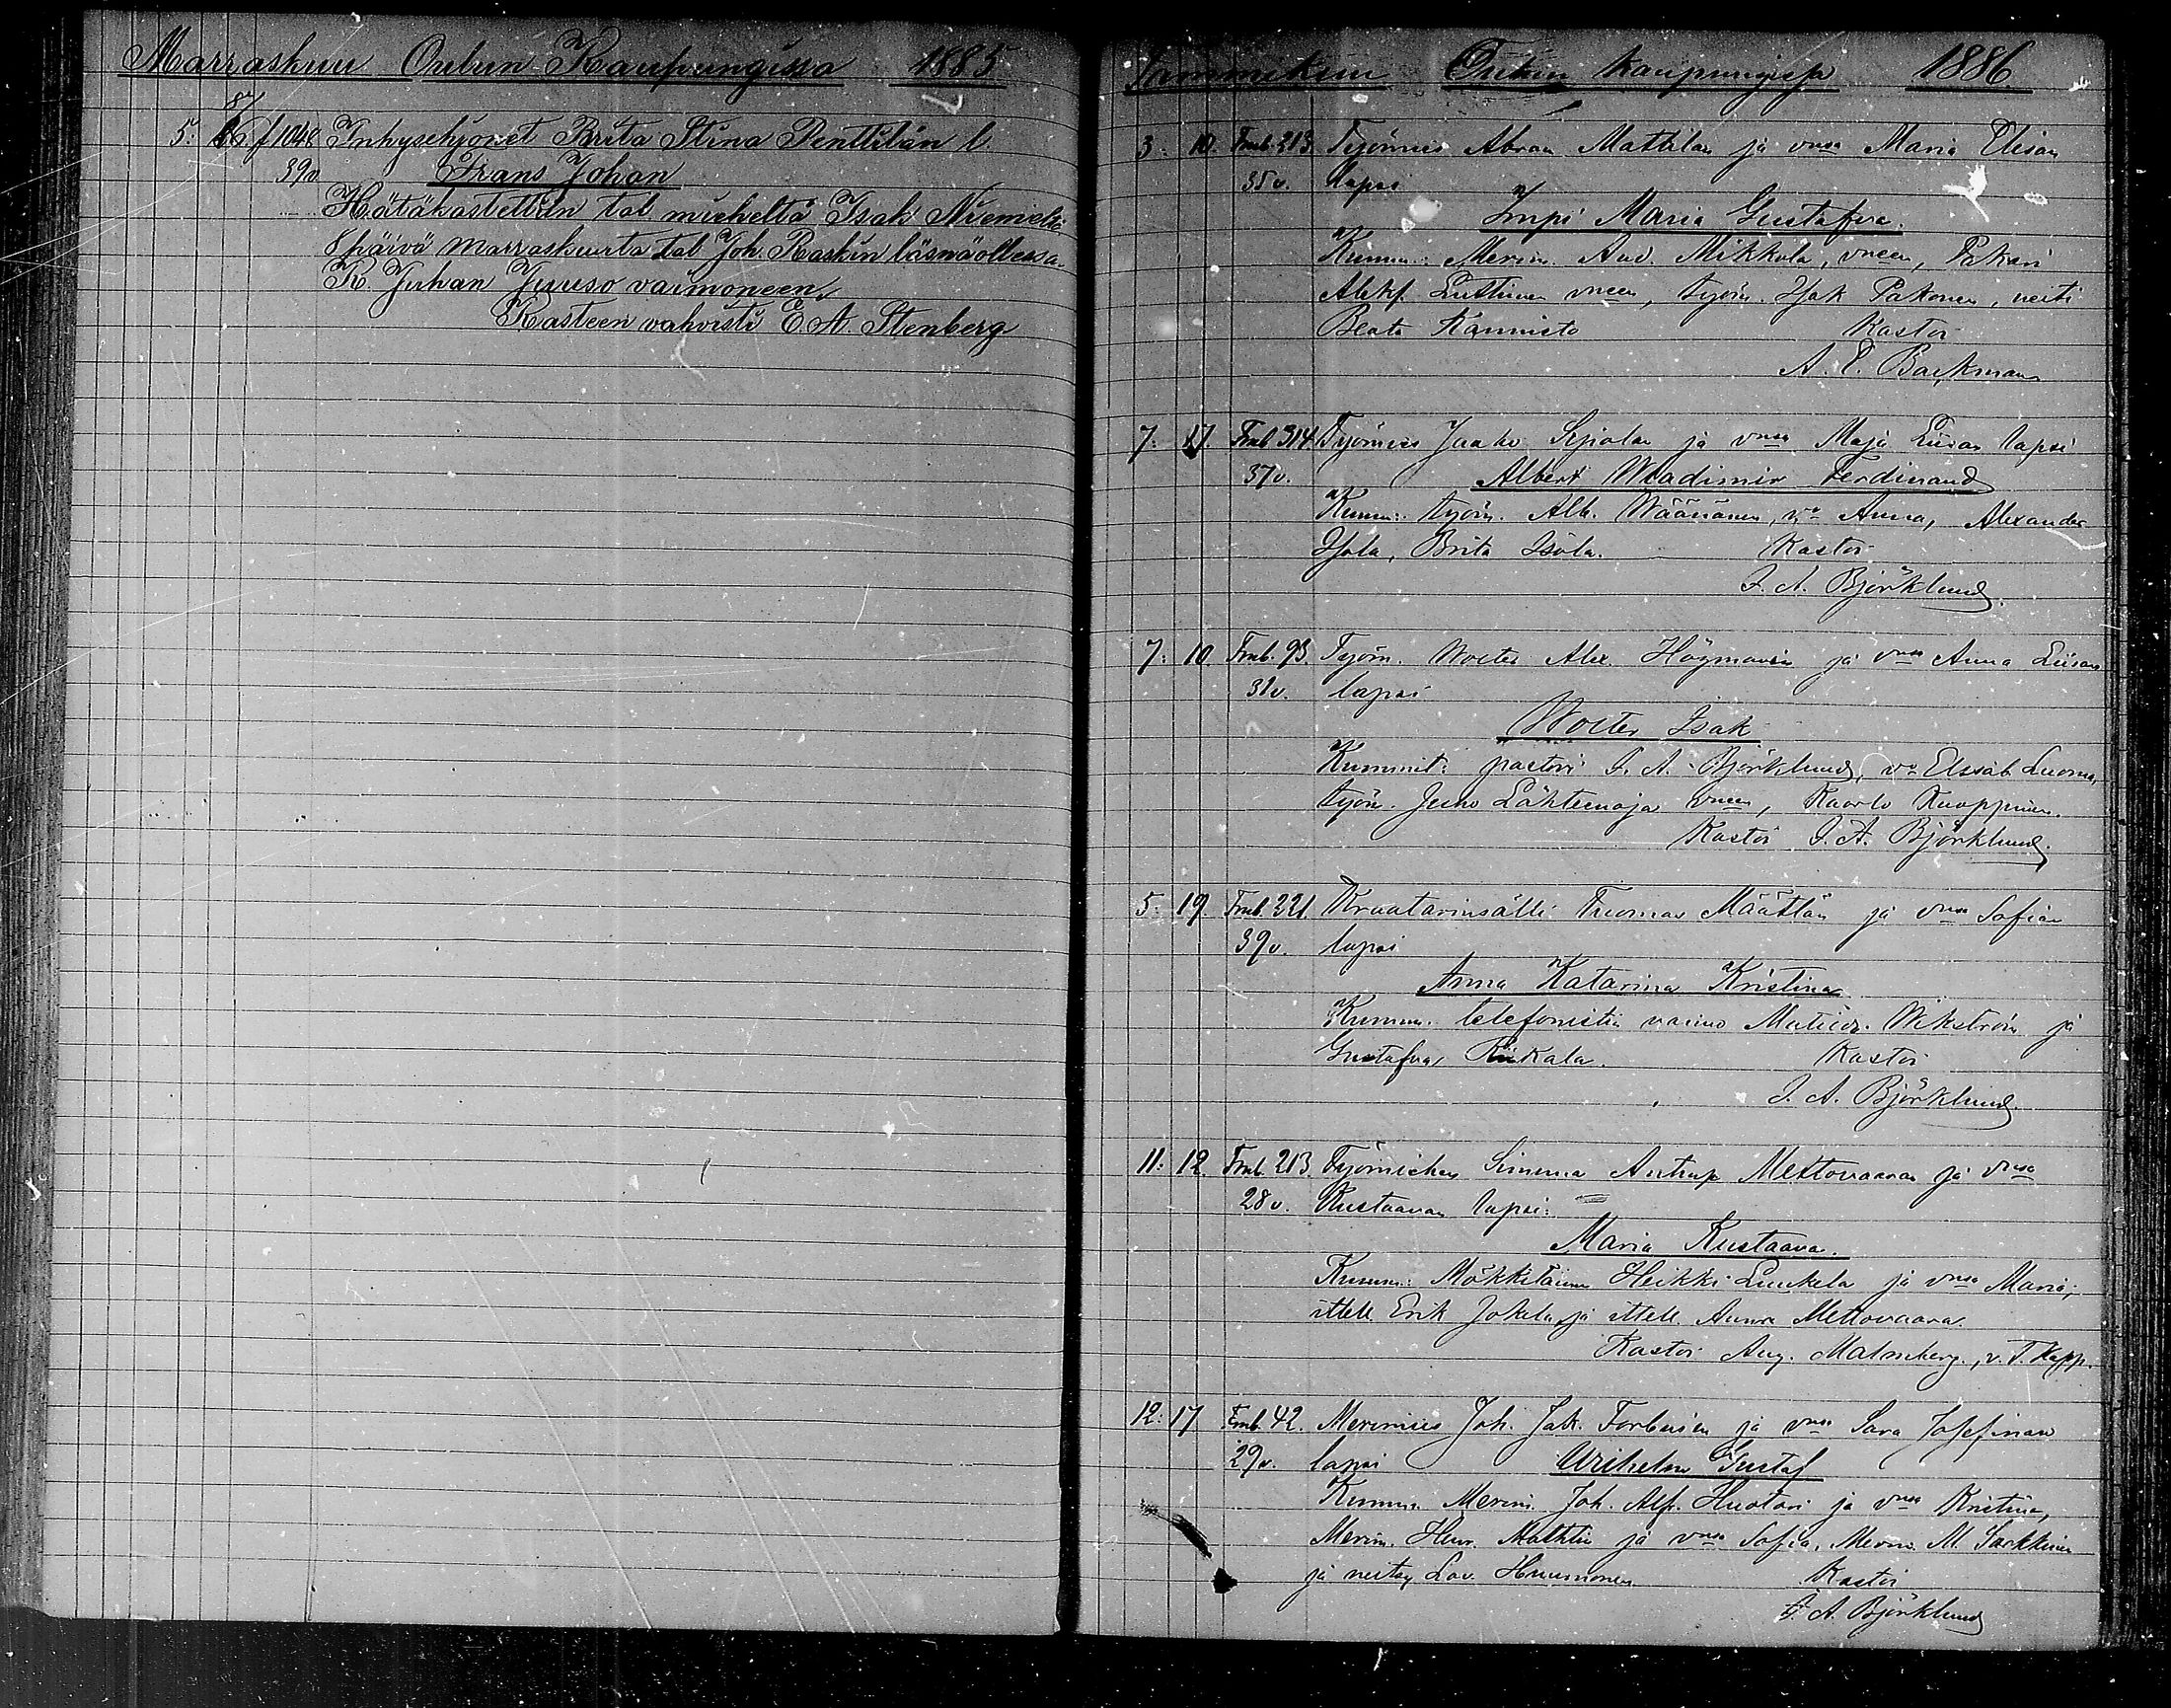 Marraskuu Oulun Kaupungissa 1885
87
5: 86. f 1048 Inhysehjonet Brita Stina Penttilän l.
39v Frans Johan
Hätäkastettiin tal mieheltä Isak Niemelä
8 päivä marraskuuta tal Joh. Raskin läsnäollessa.
K. Juhan Juuso vaimoneen
Kasteen vahvisti E A Stenberg
Tammikuu Oulun kaupungissa 1886.
3: 10. Fmb. 213. Työmies Abran Mattilan ja vmsa Maria Elisan
35 v. lapsi
Impi Maria Gustafva.
Kumm: Merim. And. Mikkola, vneen, Pakari
Alekf. Luttinen vneen, työm. Isak Pakonen, neiti
Beata Kannisto Kastoi
A. E. Backman
7: 17. Fmb 314. Työmies Jaako Sipolan ja vmsa Maja Liisan lapsi
37v. Albert Wladimir Ferdinand
Kumm: työm. Alb. Wäänänen, vo Anna, Alexander
Isola, Brita Isola. Kastoi
I. A. Björklund.
7: 10. Fmb. 93. Työm. Wolter Alex. Högmanin ja vmsa Anna Liisan
31v. lapsi
Wolter Isak
Kummit: pastori I. A. Björklund, vo Elssab. Luoma,
työm. Juho Lähteenoja vneen, Kaarlo Knoppinen.
Kastoi I. A. Björklund.
5: 19. Fmb. 221. Kraatarinsälli Tuomas Määtän ja vmsa Sofian
39v. lapsi
Anna Katarina Kristina
Kumm. telefonistin vaimo Matilda Wikström ja
Gustafva Riekala. Kastoi
I. A. Björklund.
11: 12. Fmb. 213. Työmiehen Simma Antrup Mettovaaran ja vmsa
28v. Kustaavan lapsi:
Maria Kustaava.
Kumm: Mökkiläinen Heikki Luukela ja vmsa Maria;
ittell. Erik Jokela, ja ittell. Anna Mettovaara.
Kastoi Aug. Malmberg, v. T. Kapp.
12: 17 Fmb. 42. Merimies Joh. Jak. Forbusin ja vmsa Sara Josefinan
29v. lapsi Wilhelm Gustaf
Kumm. Merim. Joh. Alf. Huotari ja vmsa Kristina,
Merim. Henr. Mathlin ja vmsa Sofia, Merim. M. Sarkkinen
ja neitsy Lov. Huumonen Kastoi
I. A. Björklund